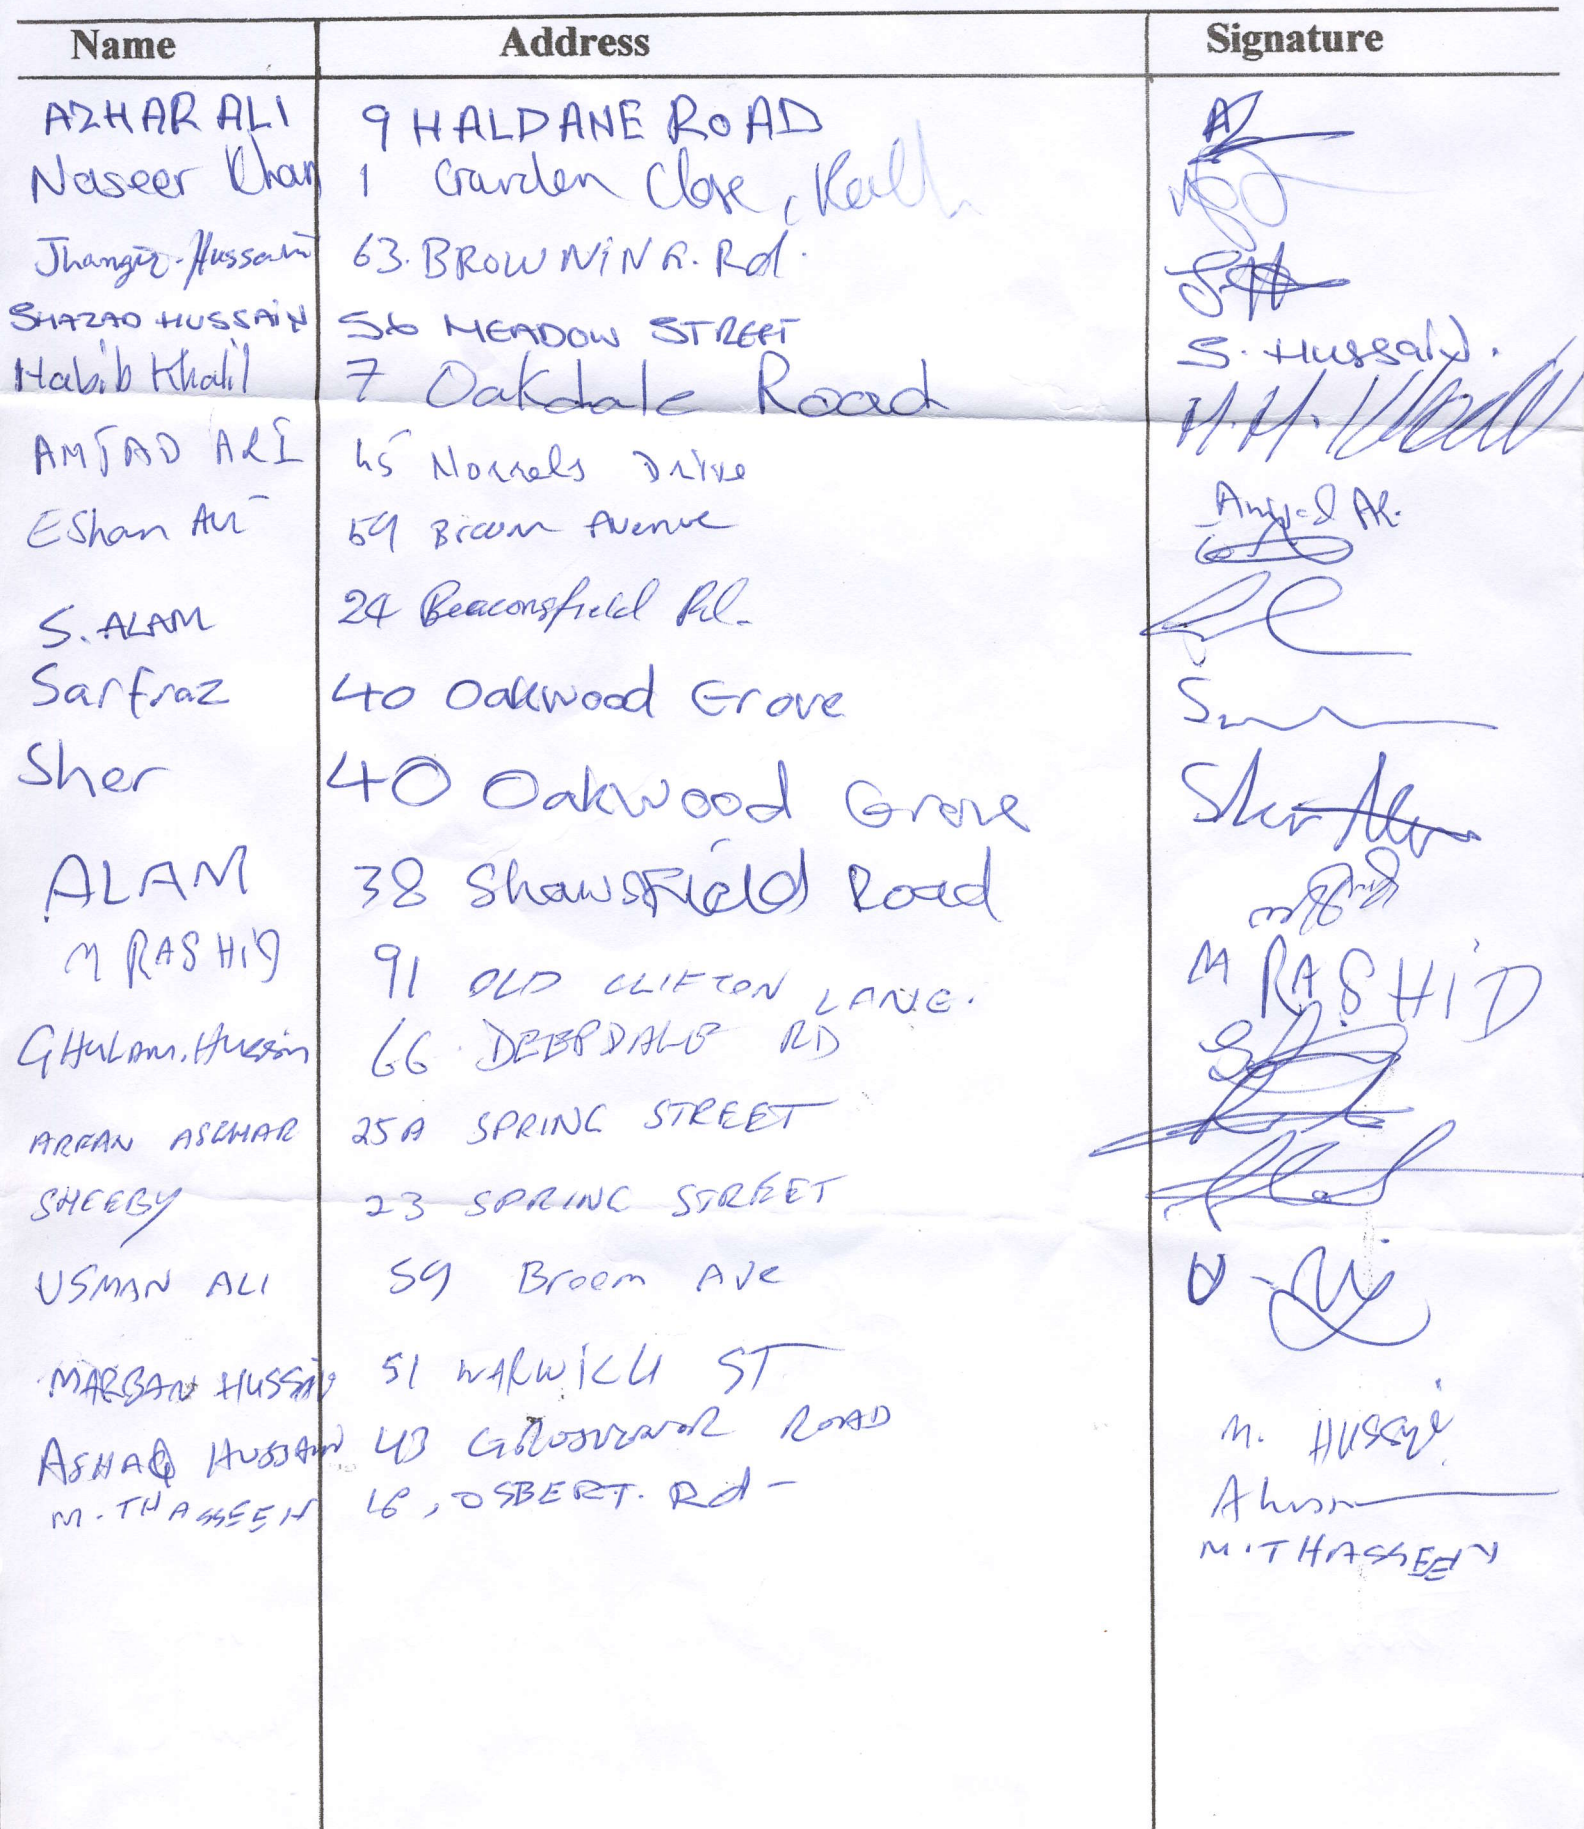 Name Address Signature
AZHAR ALI 9 HALDANE ROAD
Naseer Khan 1 Garden Close,
Jhangir Hussain 63. BROWNING. Rd.
SHAZAD HUSSAIN 56 MEADOW STREET S. Hussain.
Habib Khalil 7 Oakdale Road
AMJAD ALI 45 Drive Amjad Ali.
EShan Ali 59 Broom Avenue
S. ALAM 24 Beaconsfield Rd.
Sarfraz 40 Oakwood Grove
Sher 40 Oakwood Grove Sher
ALAM 38 Shawsfield Road
M RASHID 91 OLD CLIFTON LANE. M RASHID
GHULAM. Hussain 66 DEEPDALE RD
ARFAN ASGHAR 25A SPRING STREET
SHEEBY 23 SPRING STREET
USMAN ALI 59 Broom Ave
HUSSAIN 51 WARWICK ST M. HUSSAI
ASHAQ HUSSAIN 43 GROSVENOR ROAD
M. THASSEEN 16, OSBERT. Rd - M. THASSEEN